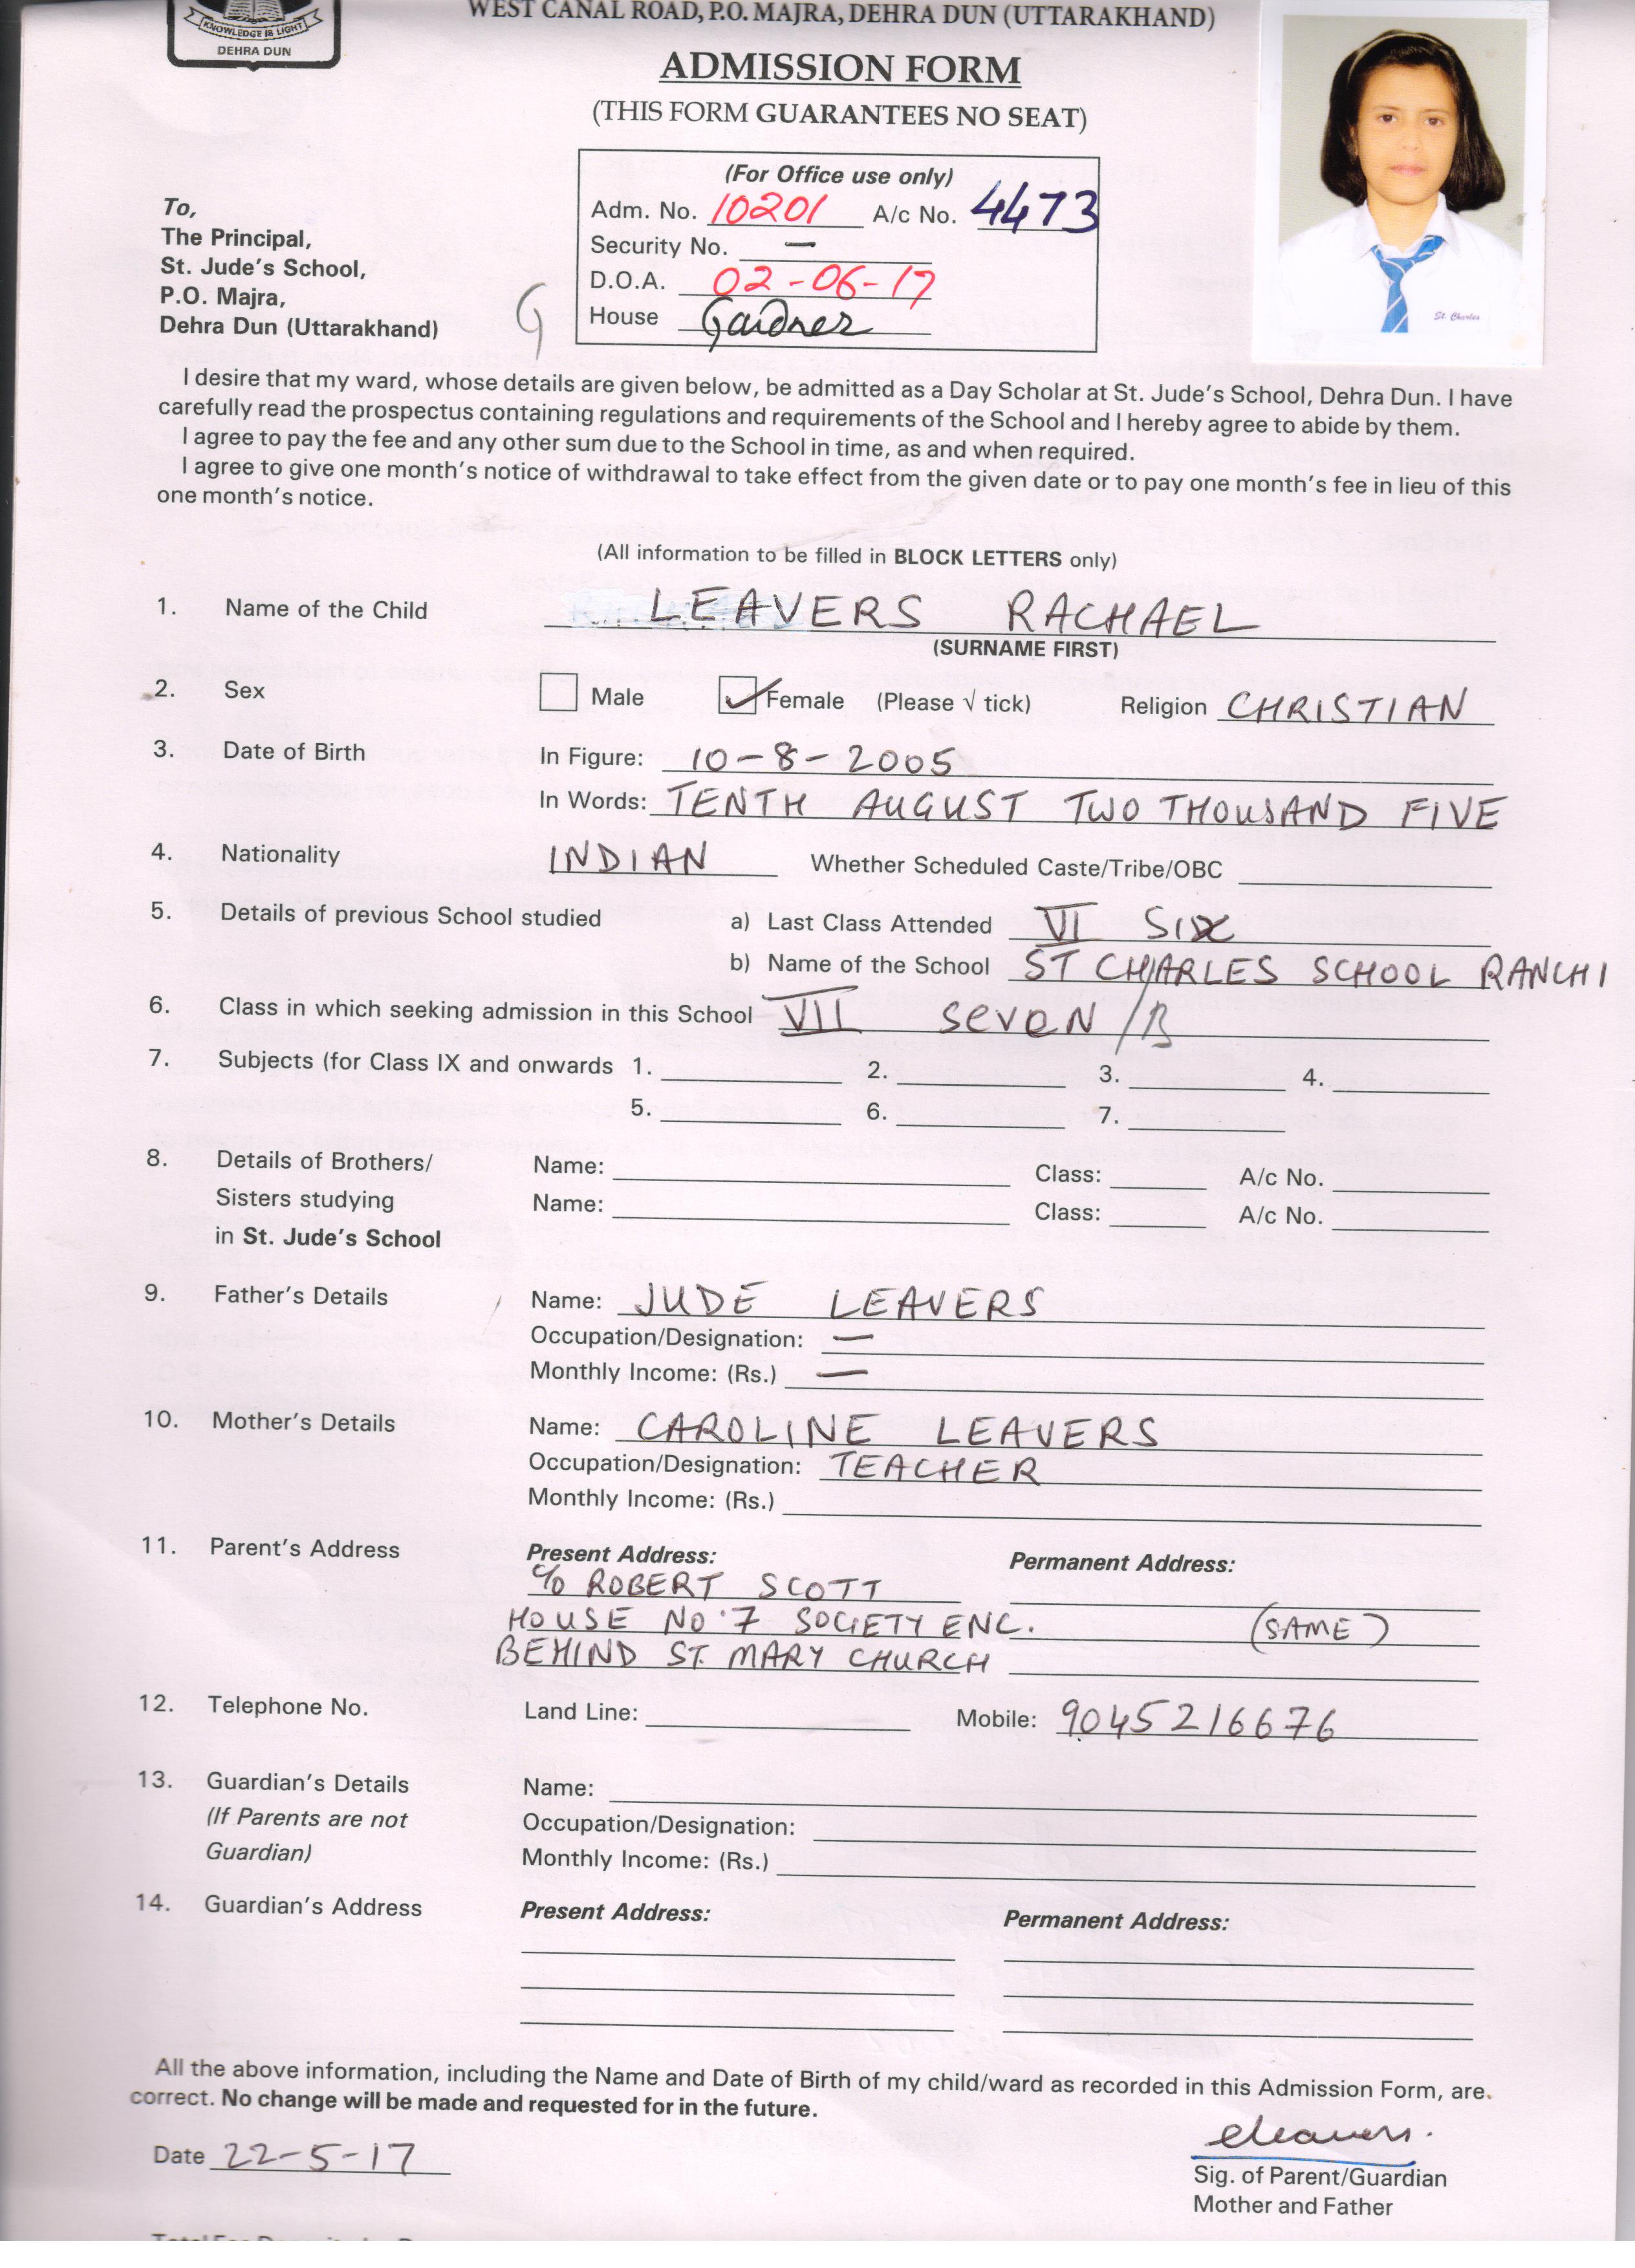 KNOWLEDGE IS LIGHT
DEHRA DUN
WEST CANAL ROAD, P.O. MAJRA, DEHRA DUN (UTTARAKHAND)
ADMISSION FORM
(THIS FORM GUARANTEES NO SEAT)
(For Office use only)
Adm. No. 10201 A/c No. 4473
Security No. —
D.O.A. 02-06-17
House Gardner
To,
The Principal,
St. Jude's School,
P.O. Majra,
Dehra Dun (Uttarakhand)
G
St. Charles
I desire that my ward, whose details are given below, be admitted as a Day Scholar at St. Jude's School, Dehra Dun. I have
carefully read the prospectus containing regulations and requirements of the School and I hereby agree to abide by them.
I agree to pay the fee and any other sum due to the School in time, as and when required.
I agree to give one month's notice of withdrawal to take effect from the given date or to pay one month's fee in lieu of this
one month's notice.
(All information to be filled in BLOCK LETTERS only)
1. Name of the Child LEAVERS RACHAEL
(SURNAME FIRST)
2. Sex Male Female (Please √ tick) Religion CHRISTIAN
3. Date of Birth In Figure: 10-8-2005
In Words: TENTH AUGUST TWO THOUSAND FIVE
4. Nationality INDIAN Whether Scheduled Caste/Tribe/OBC
5. Details of previous School studied a) Last Class Attended VI SIX
b) Name of the School ST CHARLES SCHOOL RANCHI
6. Class in which seeking admission in this School VII SEVEN /B
7. Subjects (for Class IX and onwards 1. 2. 3. 4.
5. 6. 7.
8. Details of Brothers/ Name: Class: A/c No.
Sisters studying Name: Class: A/c No.
in St. Jude's School
9. Father's Details Name: JUDE LEAVERS
Occupation/Designation: —
Monthly Income: (Rs.) —
10. Mother's Details Name: CAROLINE LEAVERS
Occupation/Designation: TEACHER
Monthly Income: (Rs.)
11. Parent's Address Present Address: Permanent Address:
C/o ROBERT SCOTT
HOUSE NO 7 SOCIETY ENC. (SAME)
BEHIND ST. MARY CHURCH
12. Telephone No. Land Line: Mobile: 9045216676
13. Guardian's Details Name:
(If Parents are not Occupation/Designation:
Guardian) Monthly Income: (Rs.)
14. Guardian's Address Present Address: Permanent Address:
All the above information, including the Name and Date of Birth of my child/ward as recorded in this Admission Form, are
correct. No change will be made and requested for in the future.
Date 22-5-17 cleavers.
Sig. of Parent/Guardian
Mother and Father